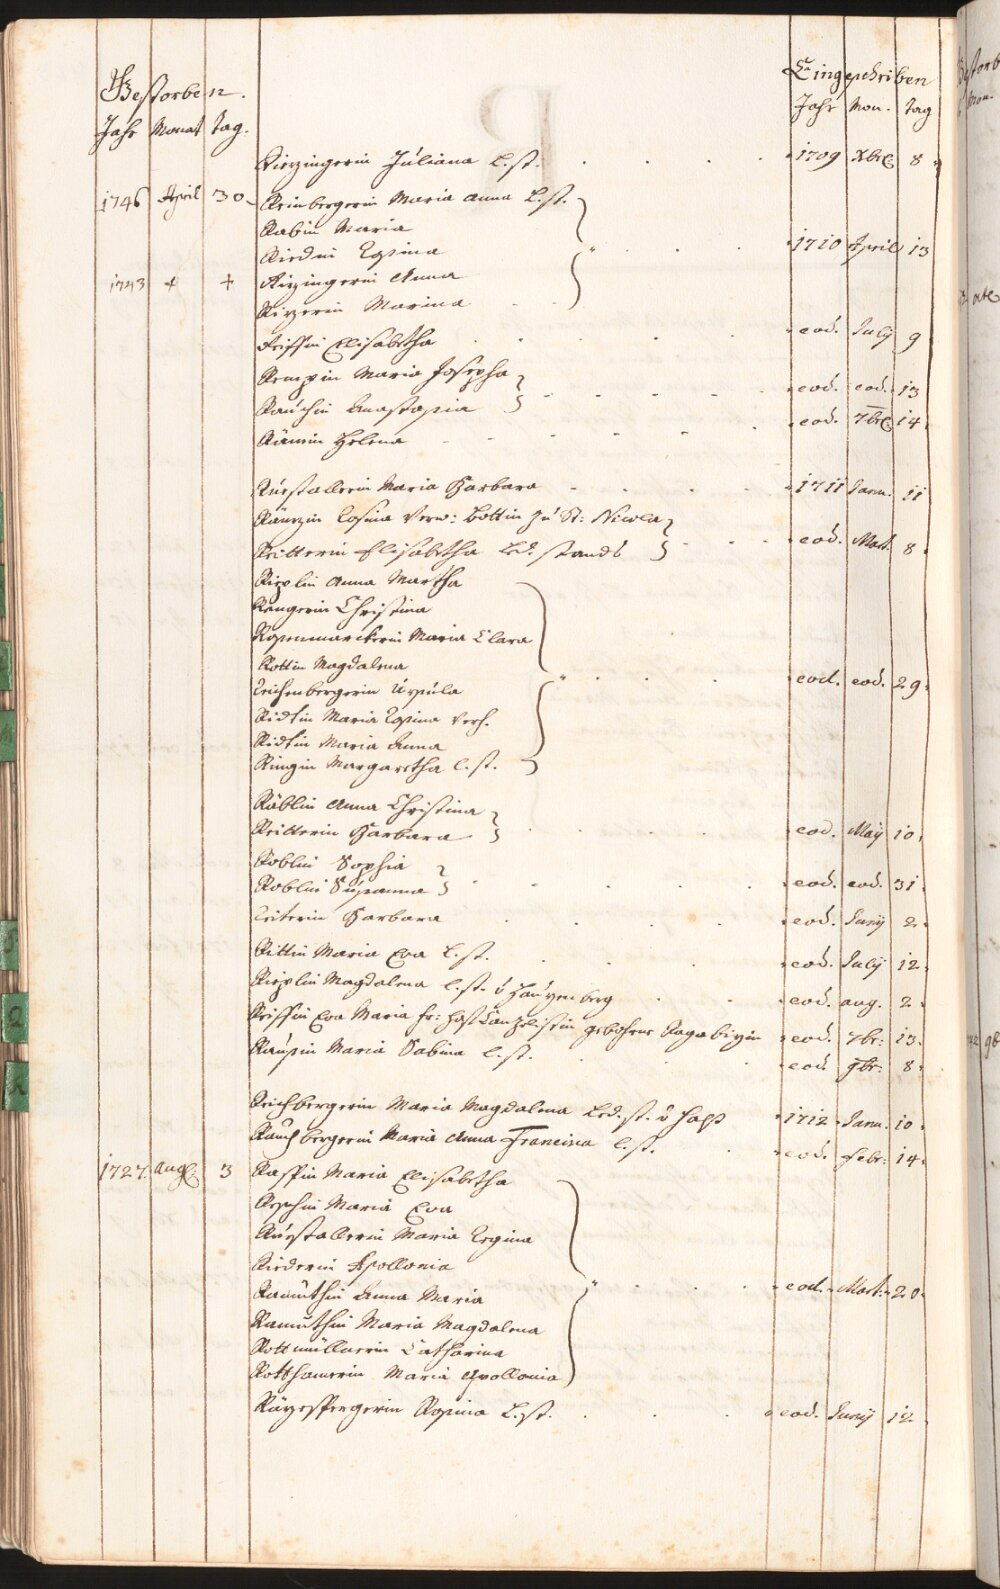 Gestorben. Eingeschriben
Jahr Monat Tag. Jahr Mon. Tag
Rizingerin Juliana L. st. 1709 Xbris 8
1746 April 30 Reinbergerin Maria Anna L. st.
Rabin Maria
Riedin Rosina 1710 April 13
1743 + + Rizingerin Anna
Rizerin Marina
Reissin Elisabetha eod. July 9
Rempin Maria Josepha eod. eod. 13
Rauchin Anastasia
Helena eod. 7bris 14
Maria Barbara 1711 Janu. 11
Rosina Verw: Bottin zu St: Nicola
Ritterin Elisabetha Led. stands eod. Mart. 8
Rizlin Anna Martha
Rengerin Christina
Rosenmarckerin Maria Clara
Rottin Magdalena
Reichenbergerin Ursula eod. eod. 29
Ridlin Maria Rosina Verh.
Ridlin Maria Anna
Ringin Margaretha l. st.
Räblin Anna Christina
Reitterin Barbara eod. May 10
Roblin Sophia
Roblin Susanna eod. eod. 31
Reiterin Barbara eod. Junij 2
Rittin Maria Eva L. st. eod. July 12
Rizlin Magdalena l. st. v. Hauzenberg eod. aug. 2
Reissin Eva Maria gebohrne eod. 7br: 13
Rausin Maria Sabina l. st. eod. 9br: 8
Reichbergerin Maria Magdalena Led. st. v Halß 1712 Janu. 10
Rauchbergerin Maria Anna Francisca l. st. eod. Febr. 14
1727 Aug. 3 Raspin Maria Elisabetha
Maria Eva
Maria Regina
Riederin Apollonia
Ramuthin Anna Maria eod. Mart. 20
Ramuthin Maria Magdalena
Rottmüllnerin Catharina
Rotthamerin Maria Apollonia
Rosina L. st. eod. Junij 12